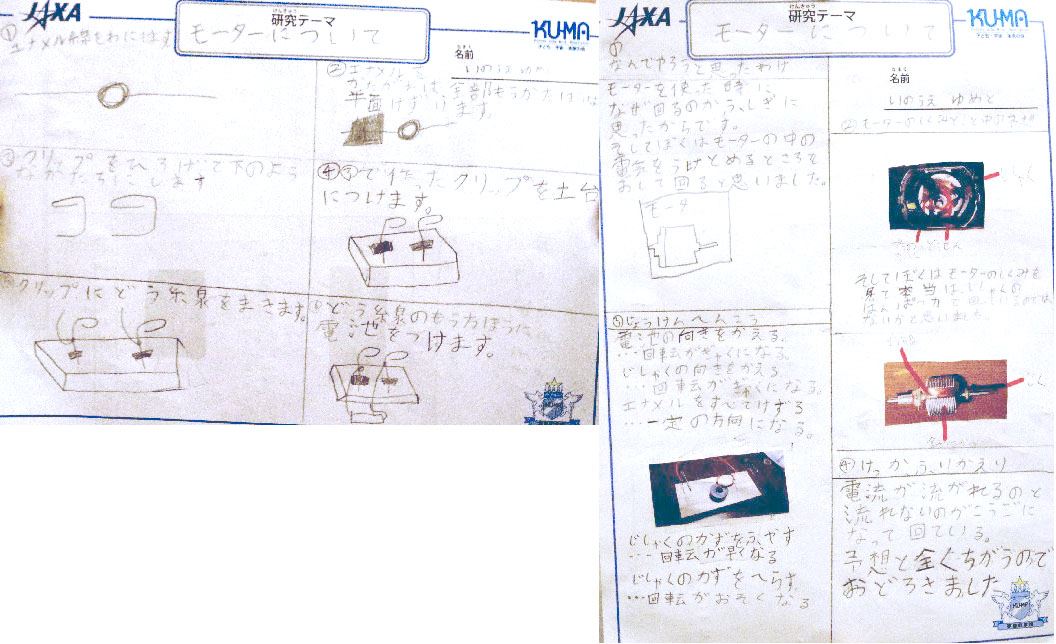 JAXA
けんきゅう
研究テーマ
モーターについて
KUMA
なまえ
名前
いのうえ
①
エナメル線をわにします
②エナメルを
半面けずります。
③クリップをひろげて下のよう
なかたちにします
④③で作ったクリップを土台
につけます。
クリップにどう線をまきます。
どう線のもう方ほうに
電池をつけます。
KUMA
JAXA
けんきゅう
研究テーマ
モーターについて
KUMA
なまえ
名前
いのうえ ゆめと
なんでやろうと思ったわけ
モーターを使った時に
なぜ回るのかふしぎに
思ったからです。
そしてぼくはモーターの中の
電気をうけとめるところを
おして回ると思いました。
モータ
③じょうけんへんこう
電池の向きをかえる。
…回転がぎゃくになる。
じしゃくの向きをかえる。
…回転がぎゃくになる。
エナメルをすべてけずる
…一定の方向になる。
じしゃくのかずをふやす
…回転が早くなる
じしゃくのかずをへらす
…回転がおそくなる
そしてぼくはモーターのしくみを
見て本当は
ないかと思いました。
④けっか、ふりかえり
電流が流がれるのと
流れないのがこうごに
なって回ている。
予想と全くちがうので
おどろきました
KUMA